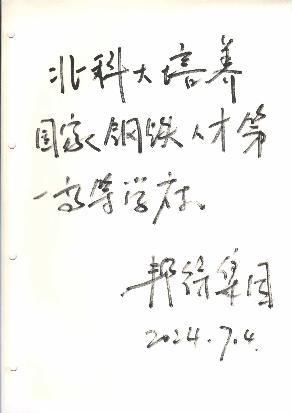 北科大培养
国家钢铁人才第
一高等学府。
邦集团
2024.7.4.